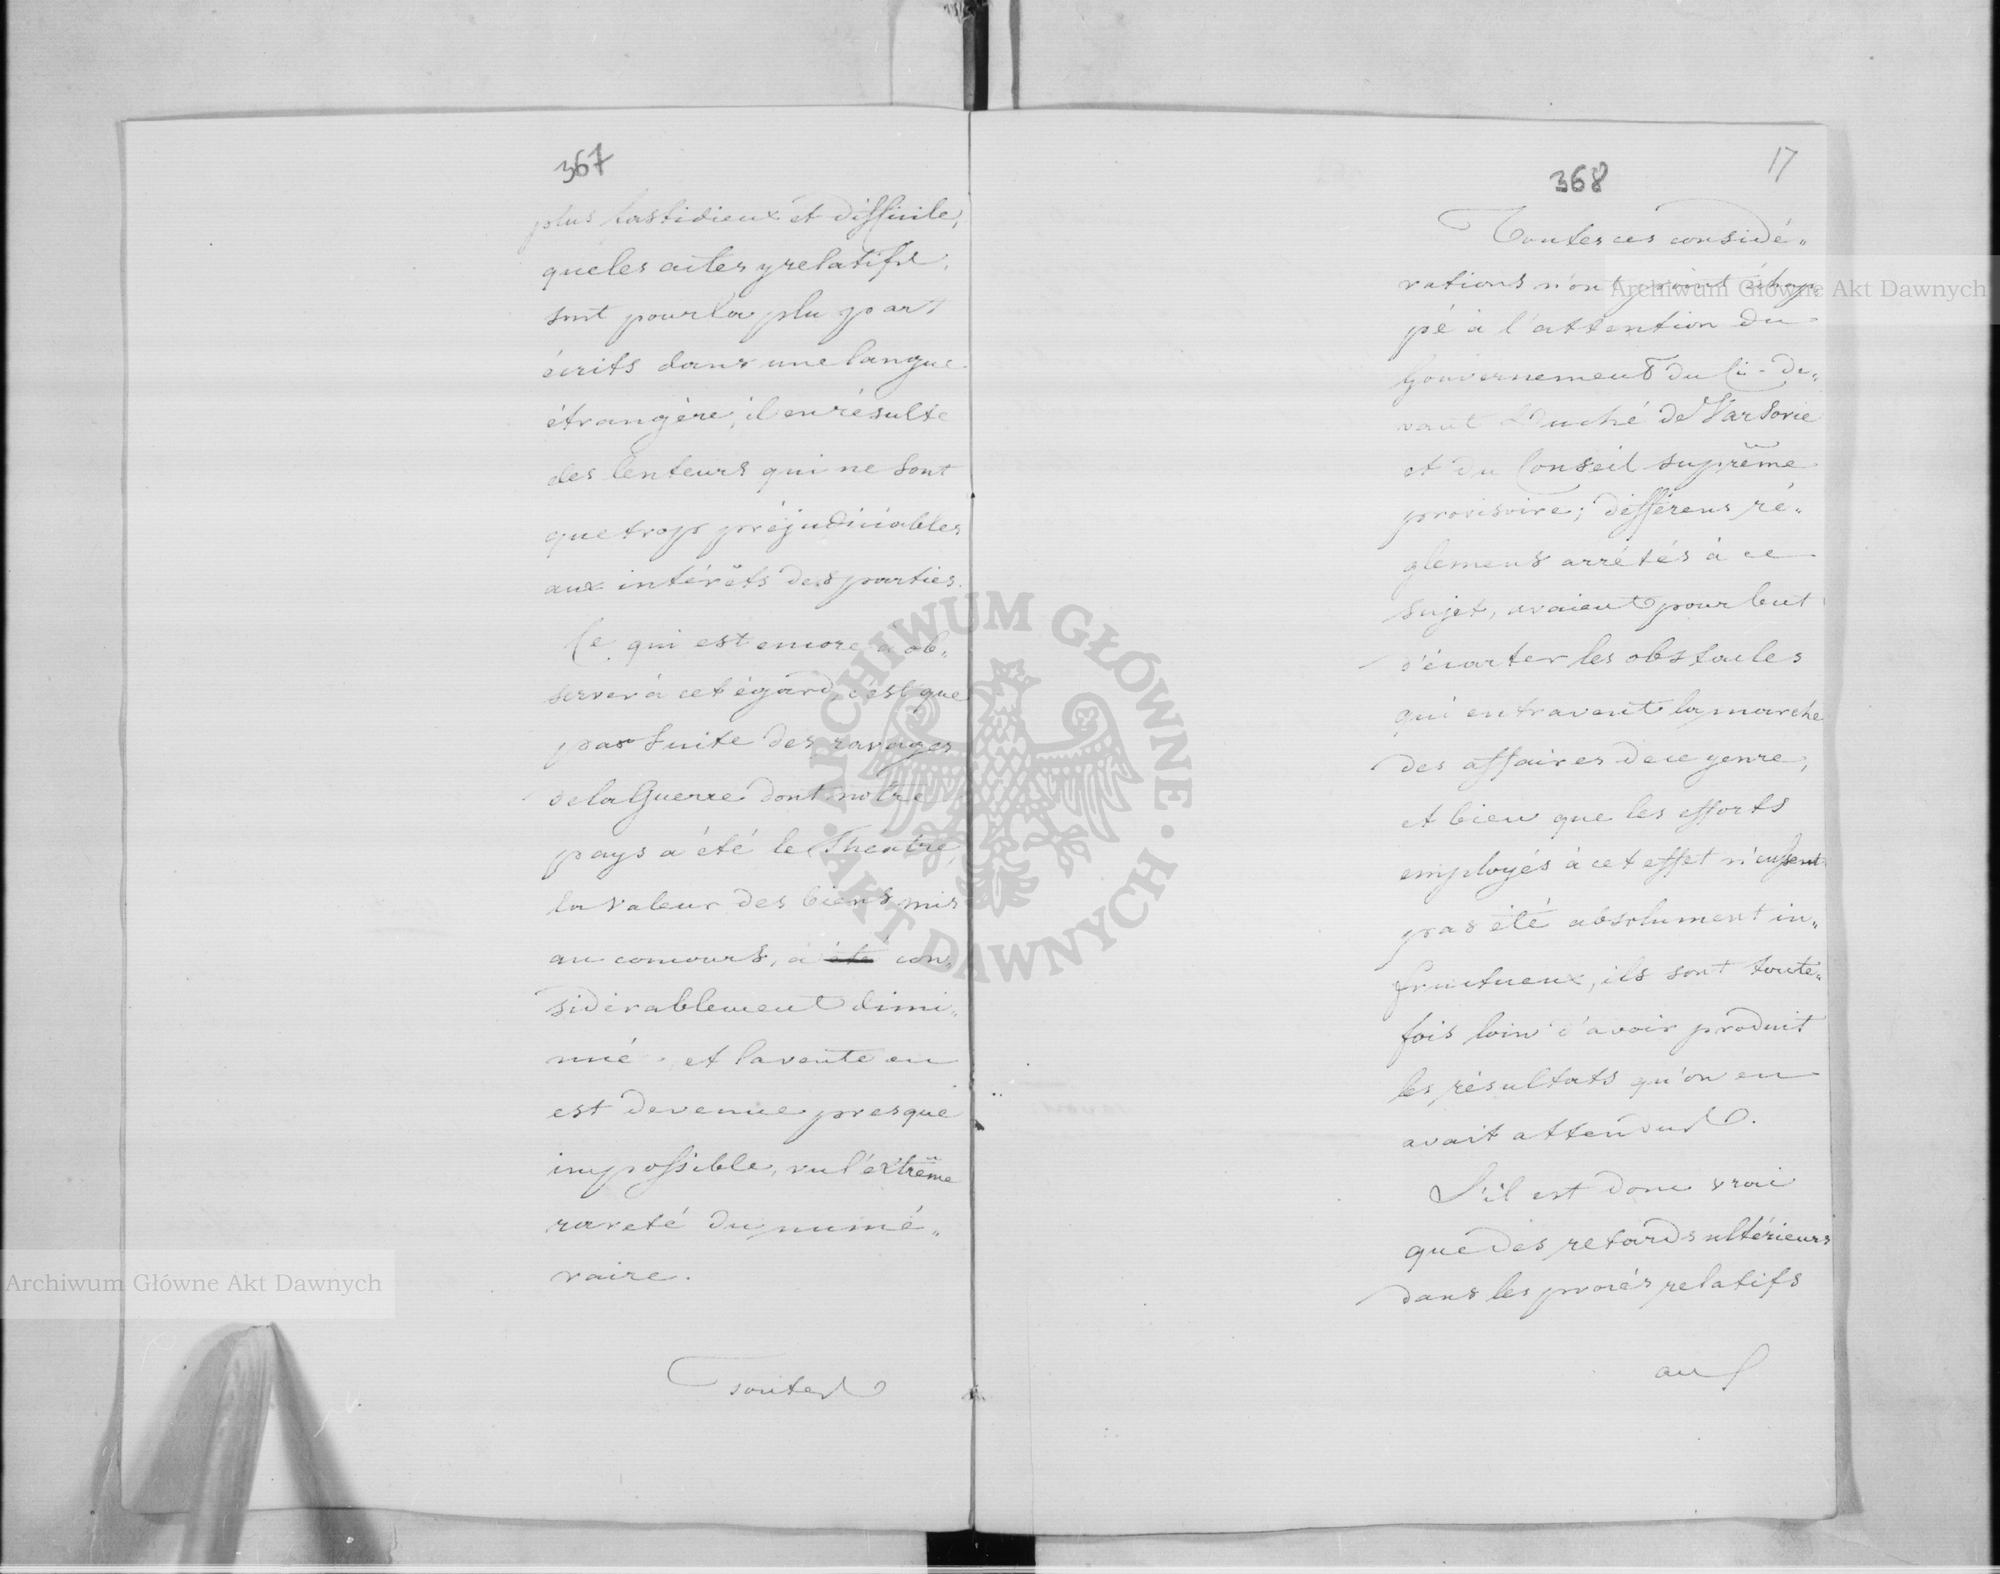 367
plus fastidieux et difficile,
que les actes y relatifs,
sont pour la plupart
écrits dans une langue
étrangère, il en résulte
des lenteurs qui ne sont
que trop préjudiciables
aux intérêts des parties.
Ce qui est encore à ob„
server à cet égard, c'est que
par suite des ravages
de la Guerre dont notre
pays a été le Theatre,
la valeur des biens mis
au concours, a été con„
sidérablement dimi„
nué et la vente en
est devenue presque
impossible, vu l'extrême
rareté du numé„
raire.
Toutes
17
368
Toutes ces considé„
rations n'ont point échap„
pé à l'attention du
Gouvernement du Ci-de„
vant Duché de Varsovie
et du Conseil suprême
provisoire; différens ré„
glemens arrétés à ce
sujet, avaient pour but
d'écarter les obstacles
qui entravent la marche
des affaires de ce genre,
et bien que les efforts
employés à cet effet n'eussent
pas été absolument in„
fructueux, ils sont toute„
fois loin d'avoir produit
les résultats qu'on en
avait attendus.
S'il est donc vrai
que des retards ultérieurs
dans les procés relatifs
aux
Archiwum Główne Akt Dawnych
Archiwum Główne Akt Dawnych
ARCHIWUM GŁÓWNE · AKT DAWNYCH ·